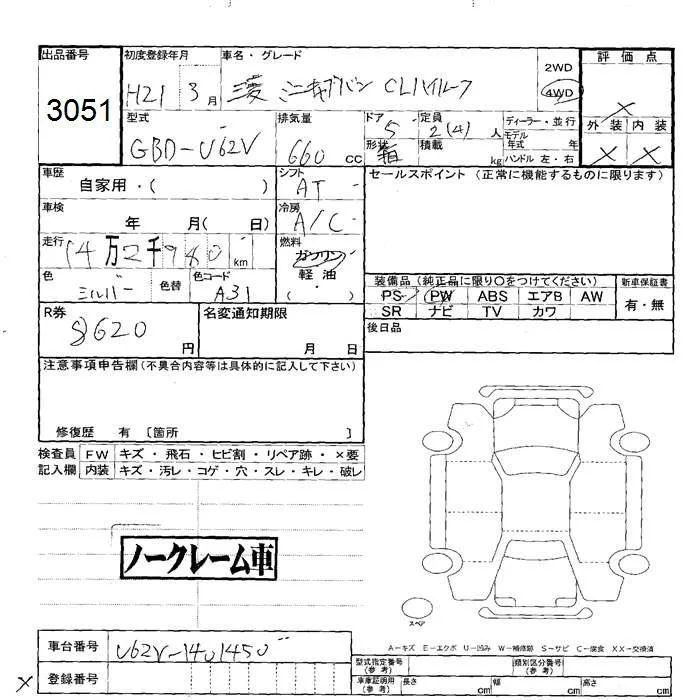 出品番号
3051
初度登録年月
H21 3月
車名・グレード
三菱 ミニキャブバン CLハイルーフ
2WD
4WD
評価点
×
外装 内装
× ×
型式
GBD-U62V
排気量
660 cc
ドア
5
形状
箱
定員
2(4)人
積載
kg
ディーラー・並行
モデル
年式 年
ハンドル 左・右
車歴
自家用・( )
シフト
AT
セールスポイント (正常に機能するものに限ります)
車検
年 月( 日)
冷房
A/C
走行
14万2千980 km
燃料
ガソリン
軽油
( ・ )
色
シルバー
色替
色コード
A31
装備品(純正品に限り○をつけてください)
PS PW ABS エアB AW
SR ナビ TV カワ
新車保証書
有・無
R券
8620
円
名変通知期限
月 日
後日品
注意事項申告欄(不具合内容等は具体的に記入して下さい)
修復歴 有 〔箇所 〕
検査員
記入欄
FW キズ・飛石・ヒビ割・リペア跡・×要
内装 キズ・汚レ・コゲ・穴・スレ・キレ・破レ
ノークレーム車
スペア
A-キズ E-エクボ U-凹み W-補修跡 S-サビ C-腐食 XX-交換済
車台番号
U62V-1401450
× 登録番号
型式指定番号
(参考)
類別区分番号
(参考)
車庫証明用
(参考)
長さ cm
幅 cm
高さ cm